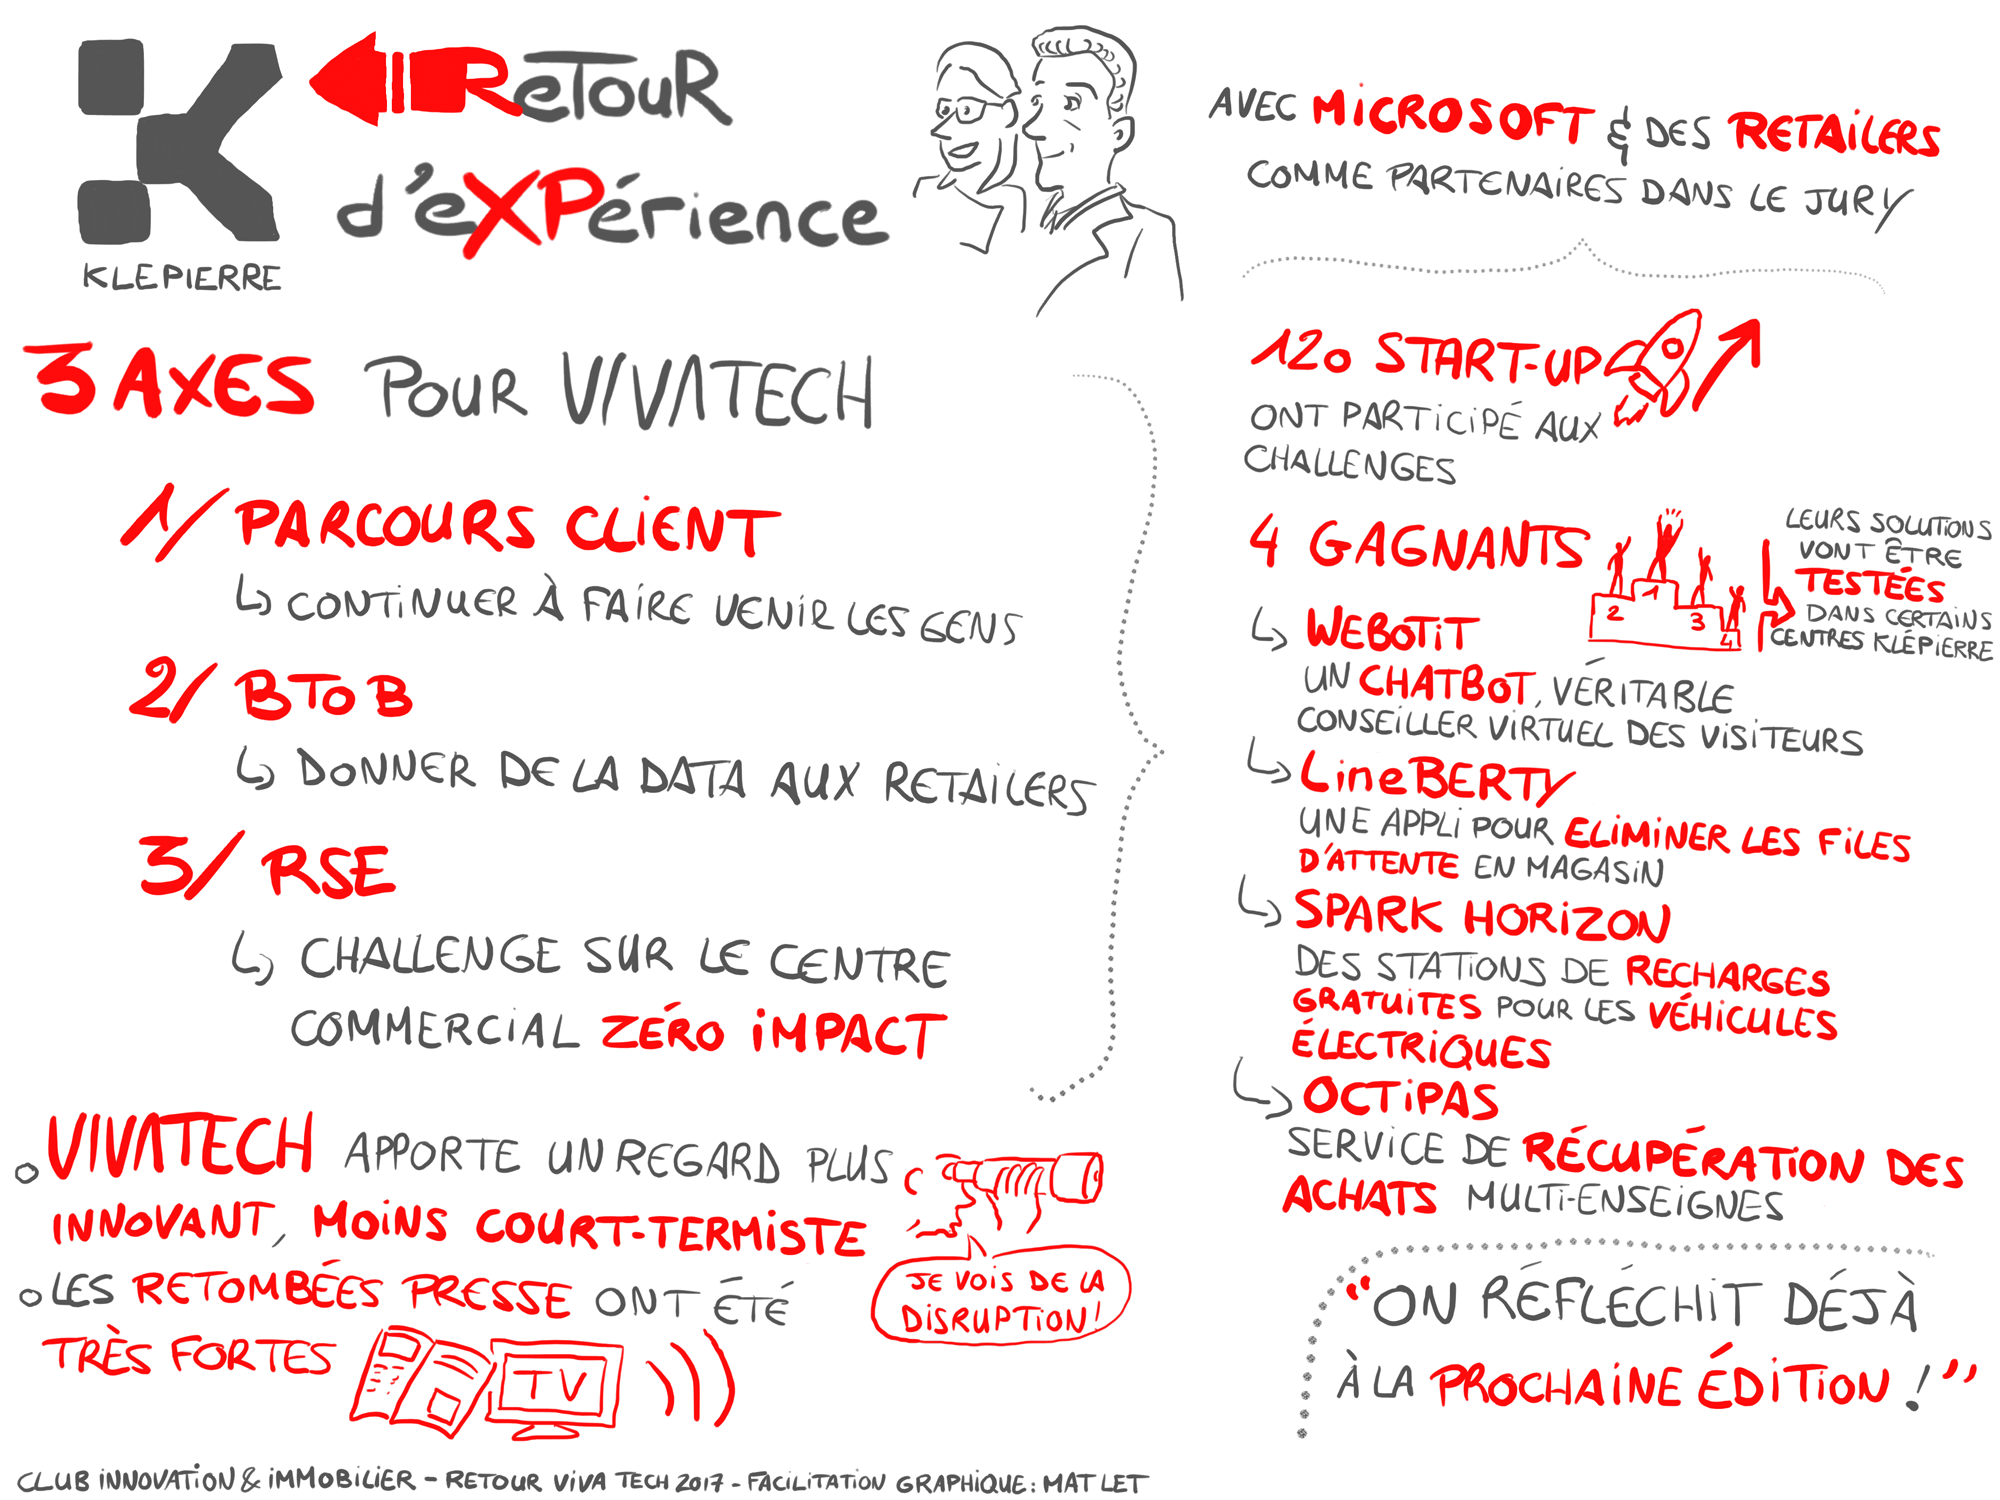 KLEPIERRE
ReTouR
d'eXPérience
3 AXES POUR VIVATECH
1/ PARCOURS CLiENT
CONTiNUER À FAiRE VENiR LES GENS
2/ B TO B
DONNER DE LA DATA AUX RETAiLERS
3/ RSE
CHALLENGE SUR LE CENTRE
COMMERCiAL ZÉRO iMPACT
VIVATECH APPORTE UN REGARD PLUS
INNOVANT, MOiNS COURT-TERMiSTE
JE VOiS DE LA
DiSRUPTiON!
LES RETOMBÉES PRESSE ONT ÉTÉ
TRÈS FORTES
TV
AVEC MiCROSOFT & DES RETAiLERS
COMME PARTENAiRES DANS LE JURY
120 START-UP
ONT PARTiCiPÉ AUX
CHALLENGES
4 GAGNANTS
2 1 3 4
LEURS SOLUTiONS
VONT ÊTRE
TESTÉES
DANS CERTAiNS
CENTRES KLÉPiERRE
WEBOTiT
UN CHATBOT, VÉRiTABLE
CONSEiLLER ViRTUEL DES ViSiTEURS
LineBERTY
UNE APPLi POUR ELiMiNER LES FiLES
D'ATTENTE EN MAGASiN
SPARK HORiZON
DES STATiONS DE RECHARGES
GRATUiTES POUR LES VÉHiCULES
ÉLECTRiQUES
OCTiPAS
SERViCE DE RÉCUPÉRATiON DES
ACHATS MULTi-ENSEiGNES
"ON RÉFLÉCHiT DÉJÀ
À LA PROCHAiNE ÉDiTiON !"
CLUB iNNOVATiON & iMMOBiLiER - RETOUR ViVA TECH 2017 - FACiLiTATiON GRAPHiQUE : MAT LET